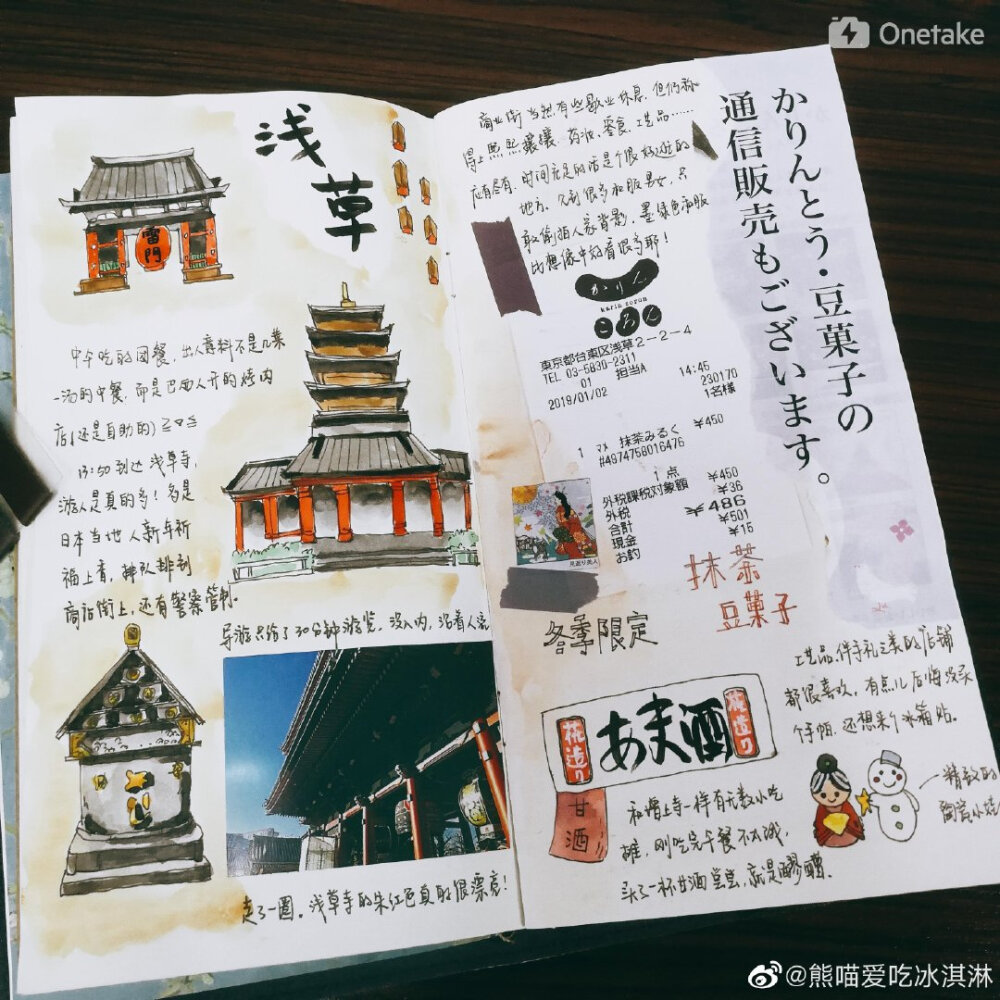 Onetake
浅草
雷門
中午吃的团餐，出人意料不是几菜
一汤的中餐，而是巴西人开的烤肉
店(还是自助的)
13:50到达浅草寺，
游人是真的多！多是
日本当地人新年祈
福上香，排队排到
商店街上，还有警察管制。
导游只给了30分钟游览，没入内，沿着人流
走了一圈。浅草寺的朱红色真的很漂亮！
商业街当然有些歇业休息，但仍称
得上熙熙攘攘，药妆、零食、工艺品……
应有尽有，时间充足的话是个很好逛的
地方。见到很多和服男女，只
敢偷拍人家背影，墨绿色和服
比想像中好看很多耶！
かりんとう・豆菓子の
通信販売もございます。
かりん
karin koron
ころん
東京都台東区浅草2-2-4
TEL 03-5830-2311
01 担当A 14:45
2019/01/02 230170
1名様
1 マメ 抹茶みるく ¥450
#4974758016476
1 点 ¥450
外税課税対象額
外税 ¥36
合計 ¥486
現金 ¥501
お釣 ¥15
見返り美人
抹茶
豆菓子
冬季限定
工艺品、伴手礼之类的店铺
都很喜欢，有点儿后悔没买
个手帕，还想来个冰箱贴。
あま酒
甘酒
精致的
和增上寺一样有无数小吃
摊，刚吃完午餐不太饿，
买了一杯甘酒尝尝，就是醪糟。
@熊喵爱吃冰淇淋